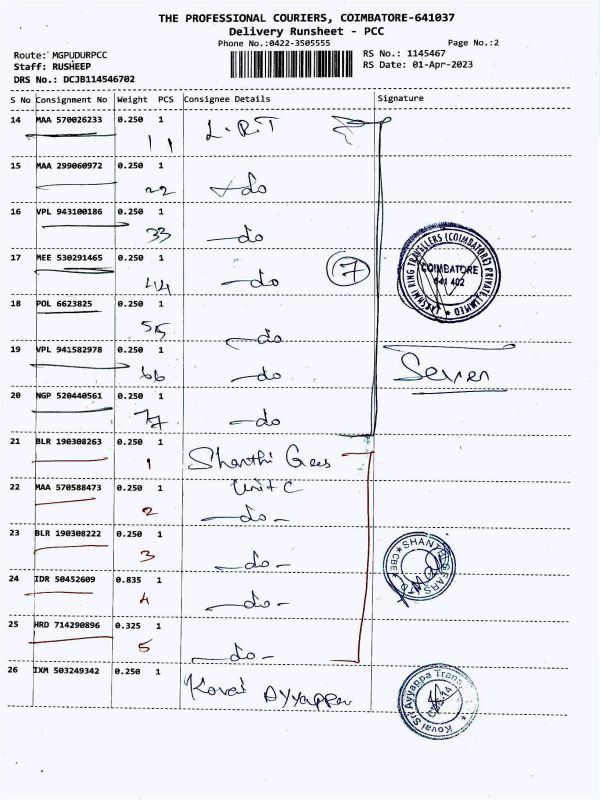 THE PROFESSIONAL COURIERS, COIMBATORE-641037
Delivery Runsheet - PCC
Phone No.:0422-3505555
Page No.:2
Route: MGPUDURPCC
RS No.: 1145467
Staff: RUSHEEP
RS Date: 01-Apr-2023
DRS No.: DCJB114546702
S No Consignment No Weight PCS Consignee Details Signature
14 MAA 570026233 0.250 1 L.R.T
11
15 MAA 299060972 0.250 1
22 do
16 VPL 943100186 0.250 1
33 do
17 MEE 530291465 0.250 1
44 do 7
LAKSHMI RING TRAVELLERS (COIMBATORE) PRIVATE LIMITED
COIMBATORE
641 402
18 POL 6623825 0.250 1
55 do
19 VPL 941582978 0.250 1
66 do
Seven
20 NGP 520440561 0.250 1
77 do
21 BLR 190308263 0.250 1
1 Shanthi Gears
22 MAA 570588473 0.250 1 Unit C
2 do
23 BLR 190308222 0.250 1
3 do
SHANTHI GEARS
CBE
24 IDR 50452609 0.835 1
4 do
25 HRD 714290896 0.325 1
5 do
26 IXM 503249342 0.250 1
Kovai Ayyappa
Kovai Sri Ayyappa Trans